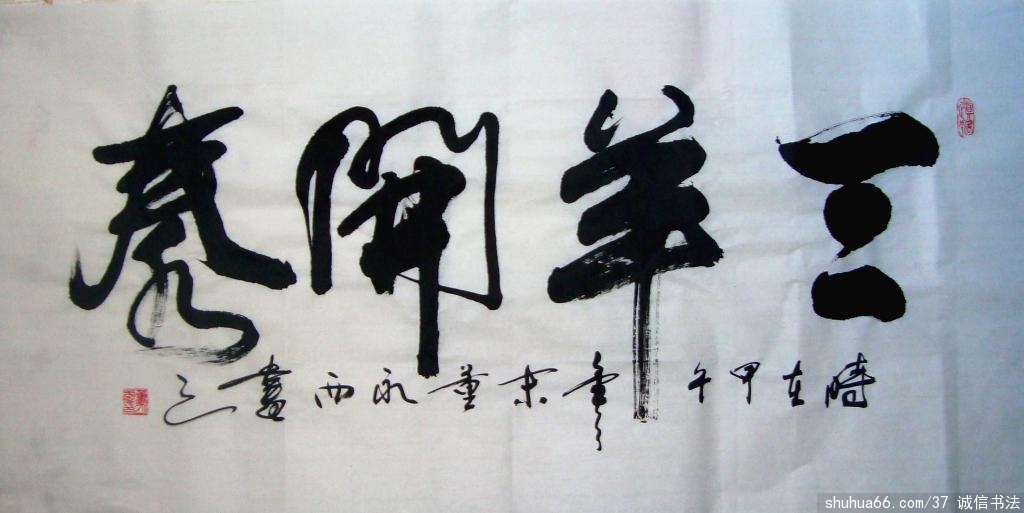 三羊開泰
時在甲午年末董永西書
shuhua66.com/37 诚信书法